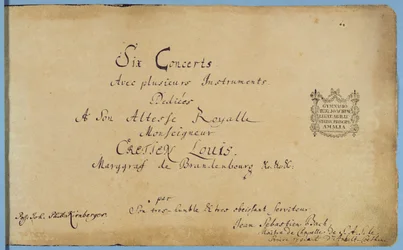 Six Concerts
Avec plusieurs Instruments.
Dediées
A Son Altesse Royalle
Monseigneur
CRETIEN LOUIS.
Marggraf de Brandenbourg &c.&c.&c.
par
Son tres-humble & tres obeissant Serviteur
Jean Sebastien Bach,
Maitre de Chapelle de S. A. S. le
Prince regnant d'Anhalt-Coethen
Kirnberger.
AMALIA